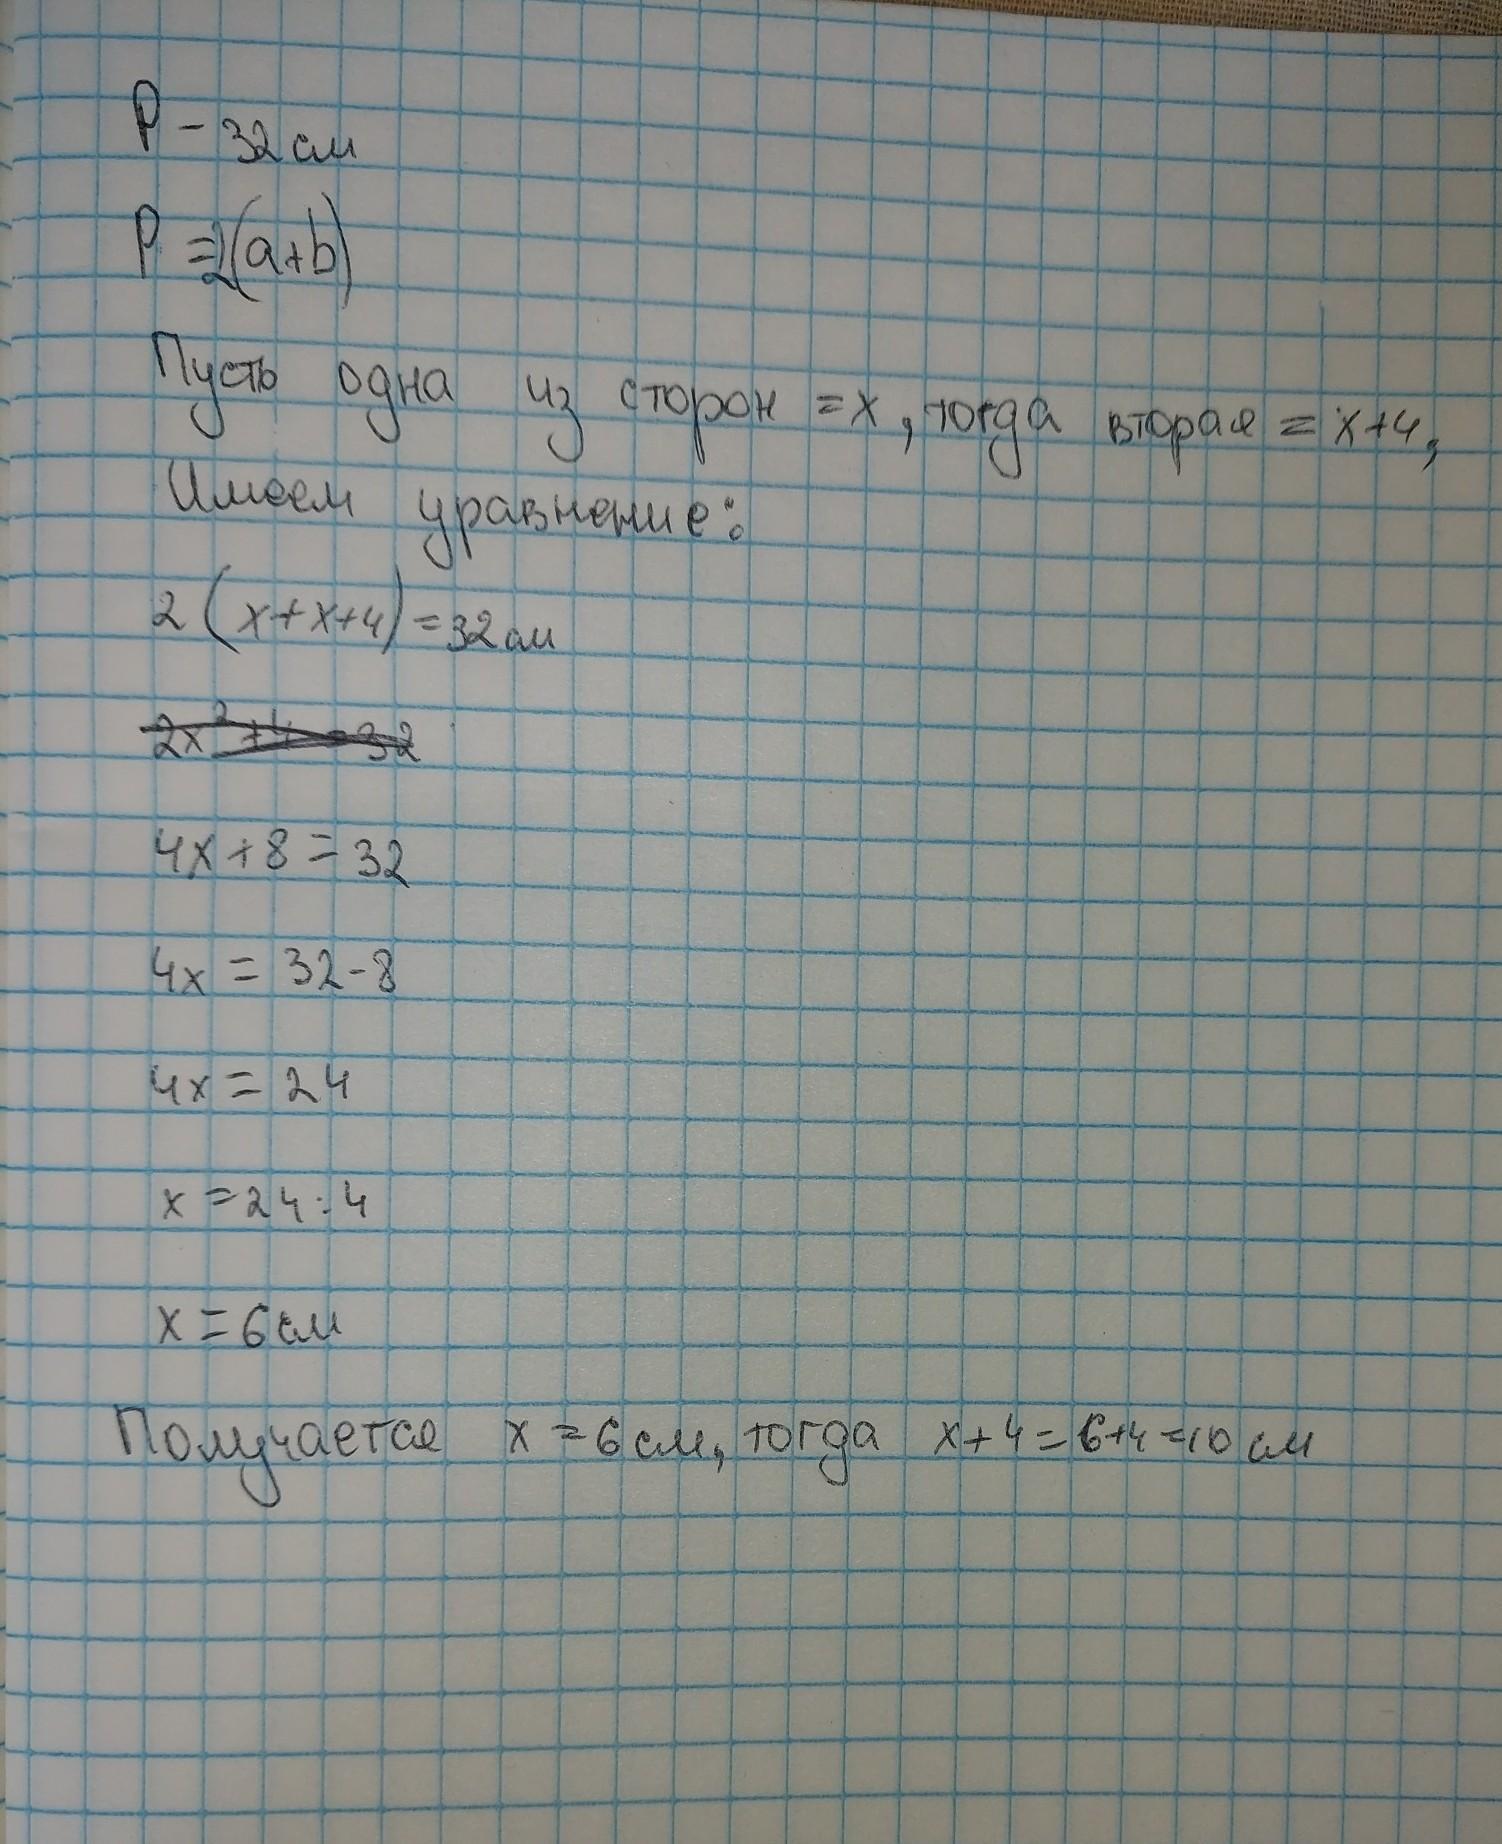 P - 32 см
P = 2(a+b)
Пусть одна из сторон = x, тогда вторая = x+4,
Имеем уравнение:
2(x+x+4) = 32 см
2x²+4 = 32
4x+8 = 32
4x = 32-8
4x = 24
x = 24:4
x = 6 см
Получается x = 6 см, тогда x+4 = 6+4 = 10 см